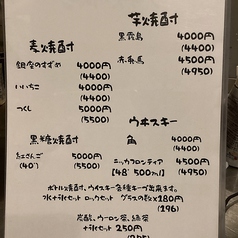 芋焼酎
黒霧島 4000円
(4400)
赤兎馬 4500円
(4950)
麦焼酎
銀座のすずめ 4000円
(4400)
いいちこ 4000円
(4400)
つくし 5000円
(5500)
黒糖焼酎
紅さんご 5000円
(40°) (5500)
ウイスキー
角 4000円
(4400)
ニッカフロンティア 4500円
[48° 500ml] (4950)
ボトル焼酎、ウイスキー各種キープ出来ます。
水+氷セット ロックセット グラスの数×180円
(196)
炭酸、ウーロン茶、緑茶
+氷セット 250円